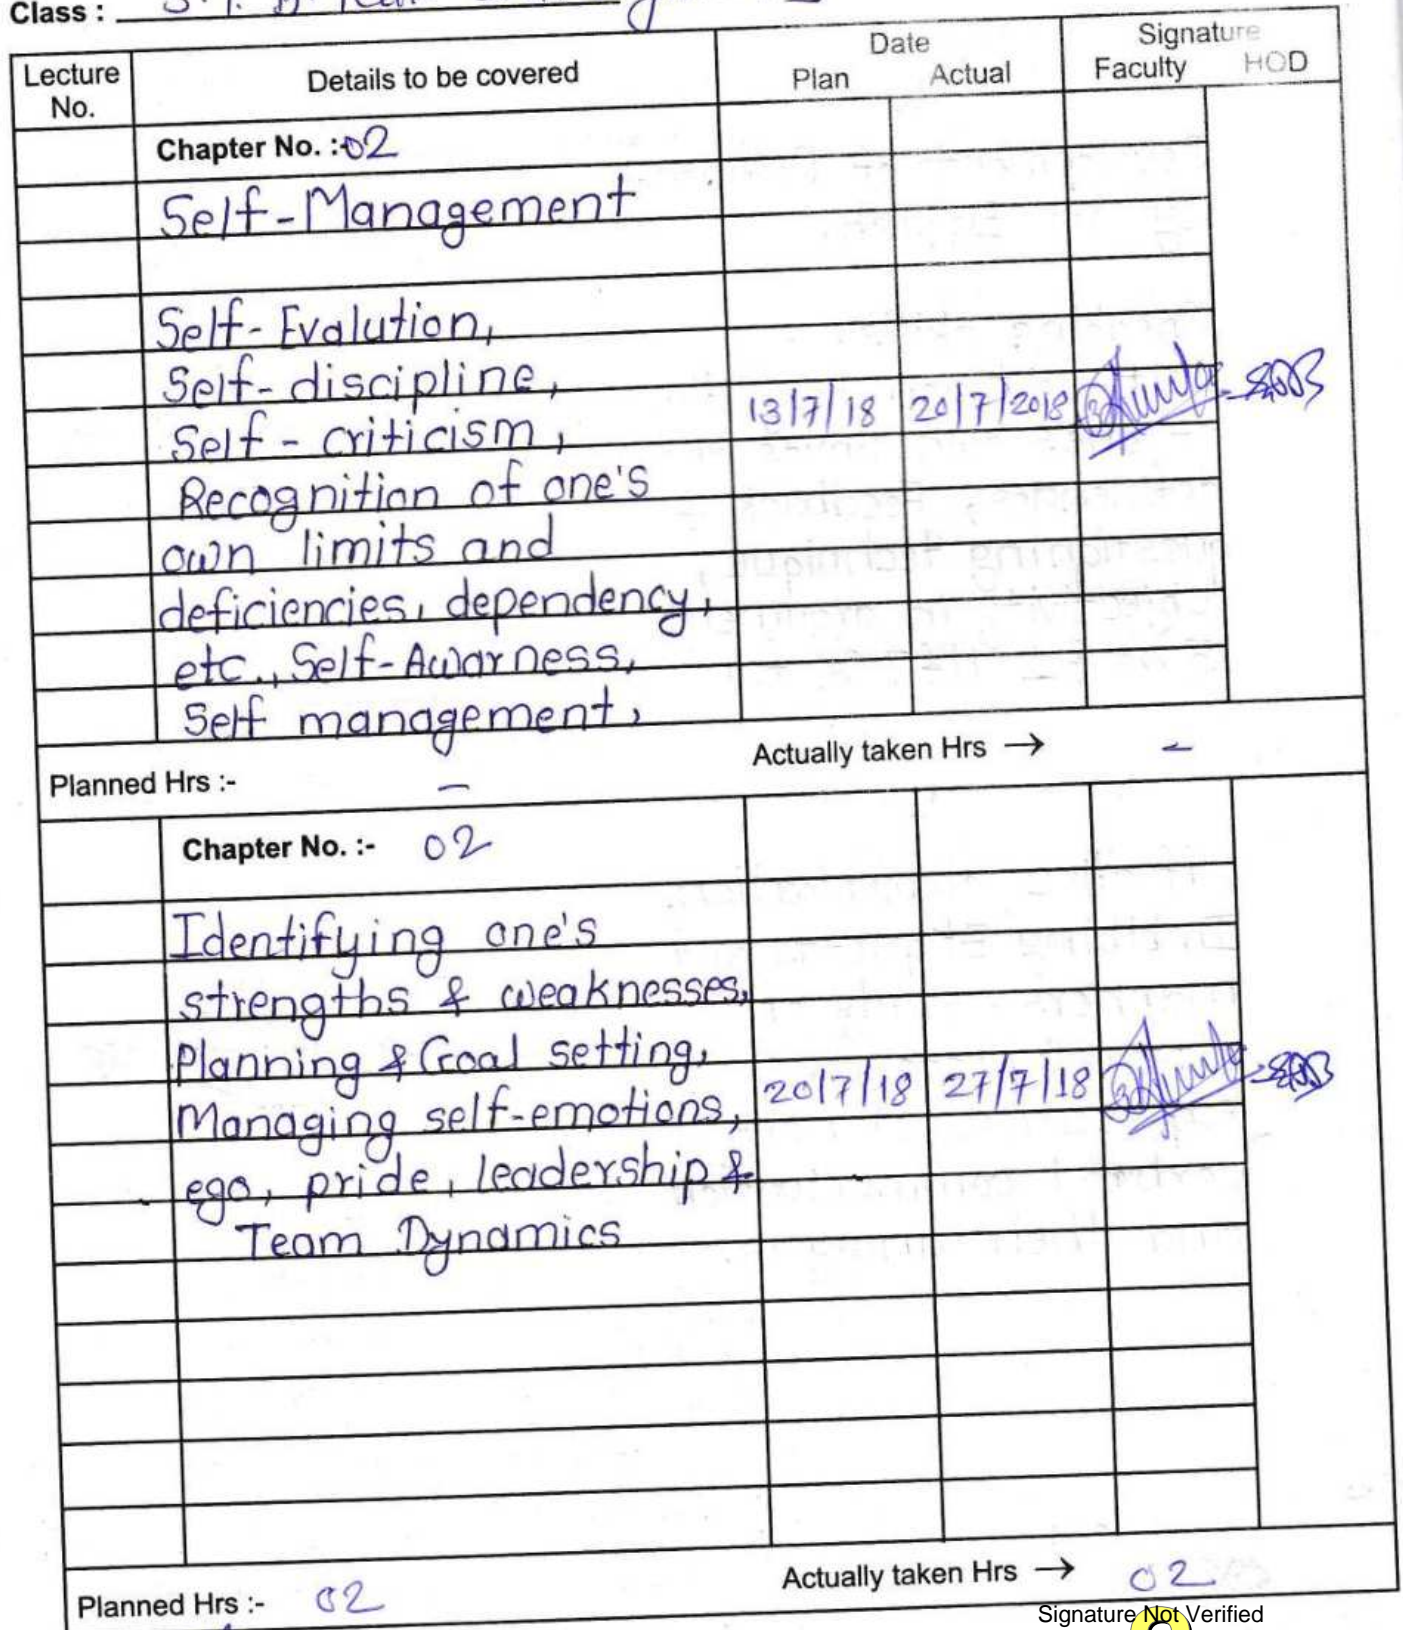 Class :
Date
Signature
Lecture No. Details to be covered Plan Actual Faculty HOD
Chapter No. :- 02
Self-Management
Self-Evalution,
Self-discipline,
13/7/18 20/7/2018
Self-criticism,
Recognition of one's
own limits and
deficiencies, dependency,
etc., Self-Awarness,
Self management,
Planned Hrs :- – Actually taken Hrs → –
Chapter No. :- 02
Identifying one's
strengths & weaknesses,
Planning & Goal setting,
20/7/18 27/7/18
Managing self-emotions,
ego, pride, leadership &
Team Dynamics
Planned Hrs :- 02 Actually taken Hrs → 02
Signature Not Verified